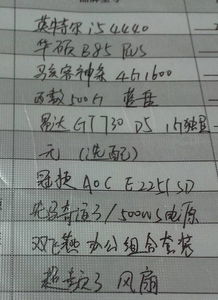 英特尔 i5 4440
华硕 B85 Plus
马克客神条 4G1600
西数 500G 蓝盘
昂达 GT730 D5 1G独显
无 (选配)
冠捷 AOC E2251SD
先马奇迹3/500W电源
双飞燕 办公组合套装
超频3 风扇